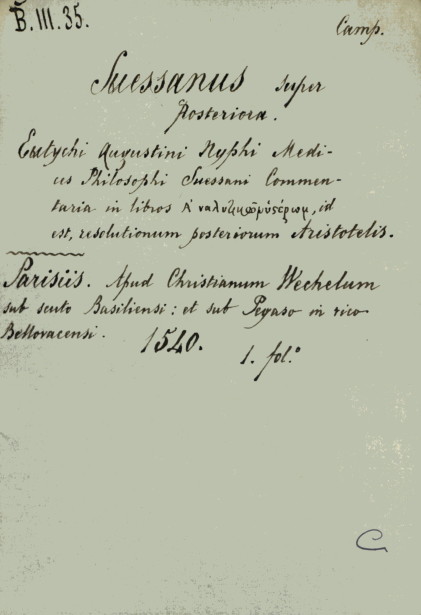 B.III.35.
Camp.
Suessanus super
posteriora.
Eutychi Augustini Nyphi Medi-
cus Philosophi Suessani Commen-
taria in libros Αναλυτικῶν ὑστέρων, id
est, resolutionum posteriorum Aristotelis.
Parisiis. Apud Christianum Wechelum
sub scuto Basiliensi: et sub Pegaso in vico
Bellovacensi.
1540.
1. fol.º
C